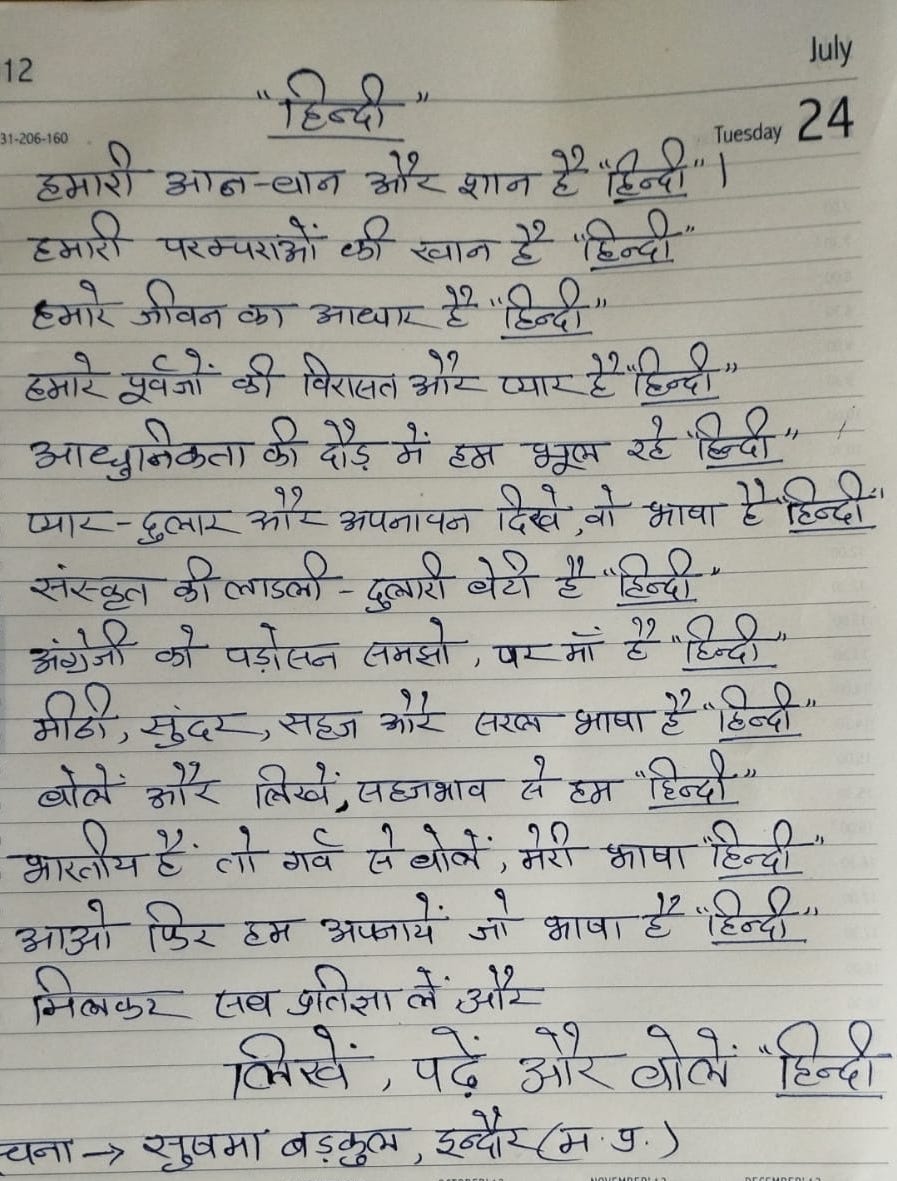 12
July
"हिन्दी"
31-206-160
Tuesday 24
हमारी आन-बान और शान है "हिन्दी" ।
हमारी परम्पराओं की खान है "हिन्दी"
हमारे जीवन का आधार है "हिन्दी"
हमारे पूर्वजों की विरासत और प्यार है "हिन्दी"
आधुनिकता की दौड़ में हम भूल रहे "हिन्दी"
प्यार-दुलार और अपनापन दिखे, वो भाषा है "हिन्दी"
संस्कृत की लाडली - दुलारी बेटी है "हिन्दी"
अंग्रेजी को पड़ोसन समझो, पर माँ है "हिन्दी"
मीठी, सुंदर, सहज और सरल भाषा है "हिन्दी"
बोलें और लिखें, सहजभाव से हम "हिन्दी"
भारतीय हैं तो गर्व से बोलें, मेरी भाषा "हिन्दी"
आओ फिर हम अपनायें जो भाषा है "हिन्दी"
मिलकर सब प्रतिज्ञा लें और
लिखें, पढ़ें और बोलें "हिन्दी
चना → सुषमा बड़कुल, इन्दौर (म.प्र.)